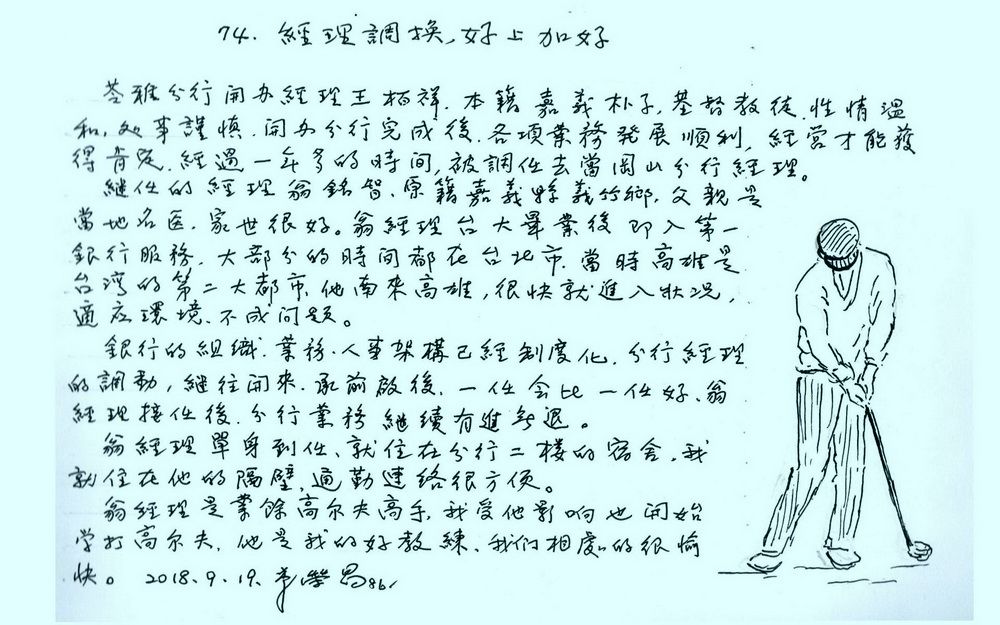 74. 經理調換, 好上加好
苓雅分行開办經理王栢祥. 本籍嘉義朴子, 基督教徒. 性情溫
和, 处事謹慎. 開办分行完成後. 各項業務發展順利, 經营才能獲
得肯定. 經過一年多的時间, 被調任去當岡山分行經理。
継任的經理翁銘智. 原籍嘉義縣義竹鄉. 父親是
當地名医. 家世很好。翁經理台大畢業後即入第一
銀行服務. 大部分的時間都在台北市. 當時高雄是
台湾的第二大都市. 他南來高雄, 很快就進入狀況,
適应環境. 不成问題。
銀行的組織. 業務. 人事架構已經制度化. 分行經理
的調動, 継往開來. 承前啟後. 一任会比一任好. 翁
經理接任後. 分行業務継續有進無退。
翁經理單身到任. 就住在分行二楼的宿舍. 我
就住在他的隔壁. 通勤連络很方便。
翁經理是業餘高尔夫高手, 我受他影响也開始
学打高尔夫. 他是我的好教練. 我们相處的很愉
快。 2018.9.19.